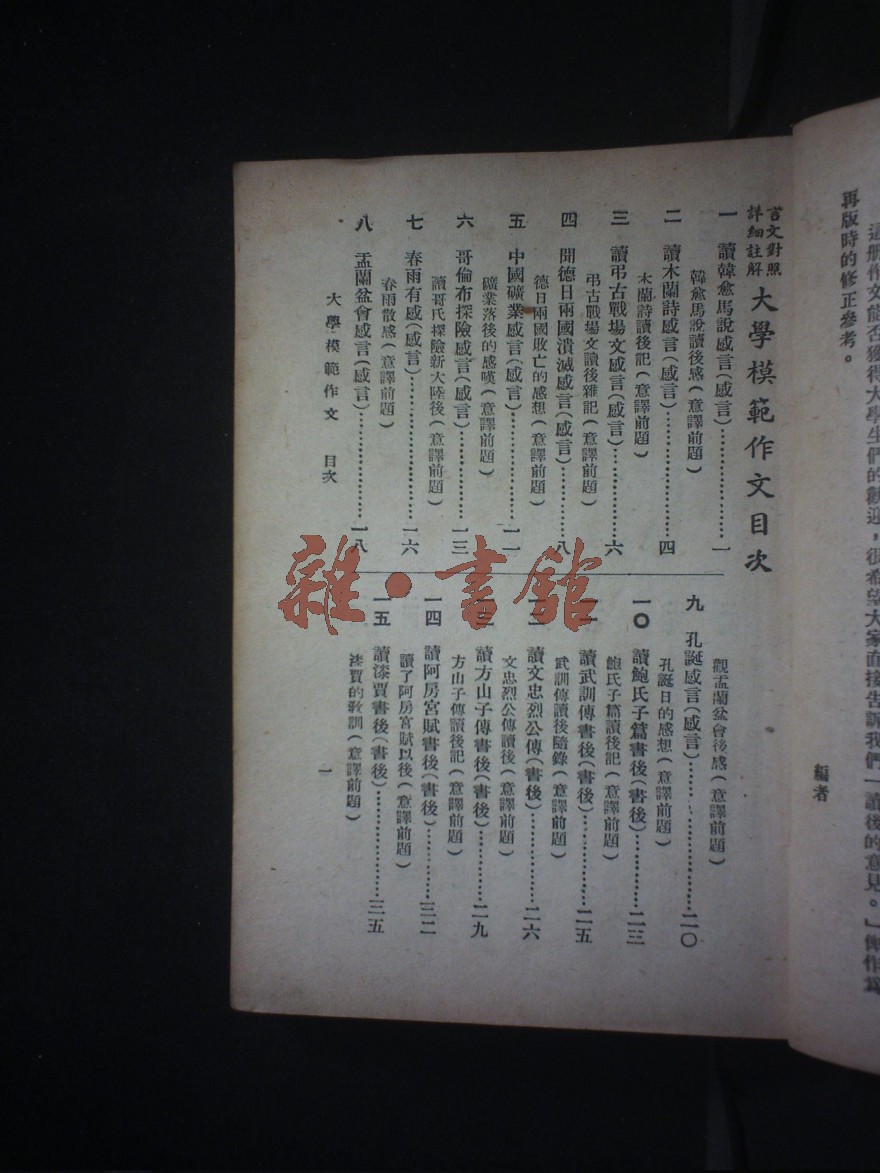 這册作文能否獲得大學生們的歡迎，很希望大家直接告訴我們「讀後的意見。」俾作爲
再版時的修正參考。
編者
言文對照
詳細註解
大學模範作文目次
一 讀韓愈馬說感言（感言）……………一
韓愈馬說讀後感（意譯前題）
二 讀木蘭詩感言（感言）……………四
木蘭詩讀後記（意譯前題）
三 讀弔古戰場文感言（感言）……………六
弔古戰場文讀後雜記（意譯前題）
四 聞德日兩國潰滅感言（感言）……………八
德日兩國敗亡的感想（意譯前題）
五 中國礦業感言（感言）……………一一
礦業落後的感嘆（意譯前題）
六 哥倫布探險感言（感言）……………一三
讀哥氏探險新大陸後（意譯前題）
七 春雨有感（感言）……………一六
春雨散感（意譯前題）
八 盂蘭盆會感言（感言）……………一八
觀盂蘭盆會後感（意譯前題）
九 孔誕感言（感言）……………二〇
孔誕日的感想（意譯前題）
一〇 讀鮑氏子篇書後（書後）……………二三
鮑氏子篇讀後記（意譯前題）
讀武訓傳書後（書後）……………二五
武訓傳讀後隨錄（意譯前題）
讀文忠烈公傳（書後）……………二六
文忠烈公傳讀後（意譯前題）
讀方山子傳書後（書後）……………二九
方山子傳讀後記（意譯前題）
一四 讀阿房宮賦書後（書後）……………三二
讀了阿房宮賦以後（意譯前題）
一五 讀漆賈書後（書後）……………三五
漆賈的敎訓（意譯前題）
大學模範作文 目次
一
雜·書館